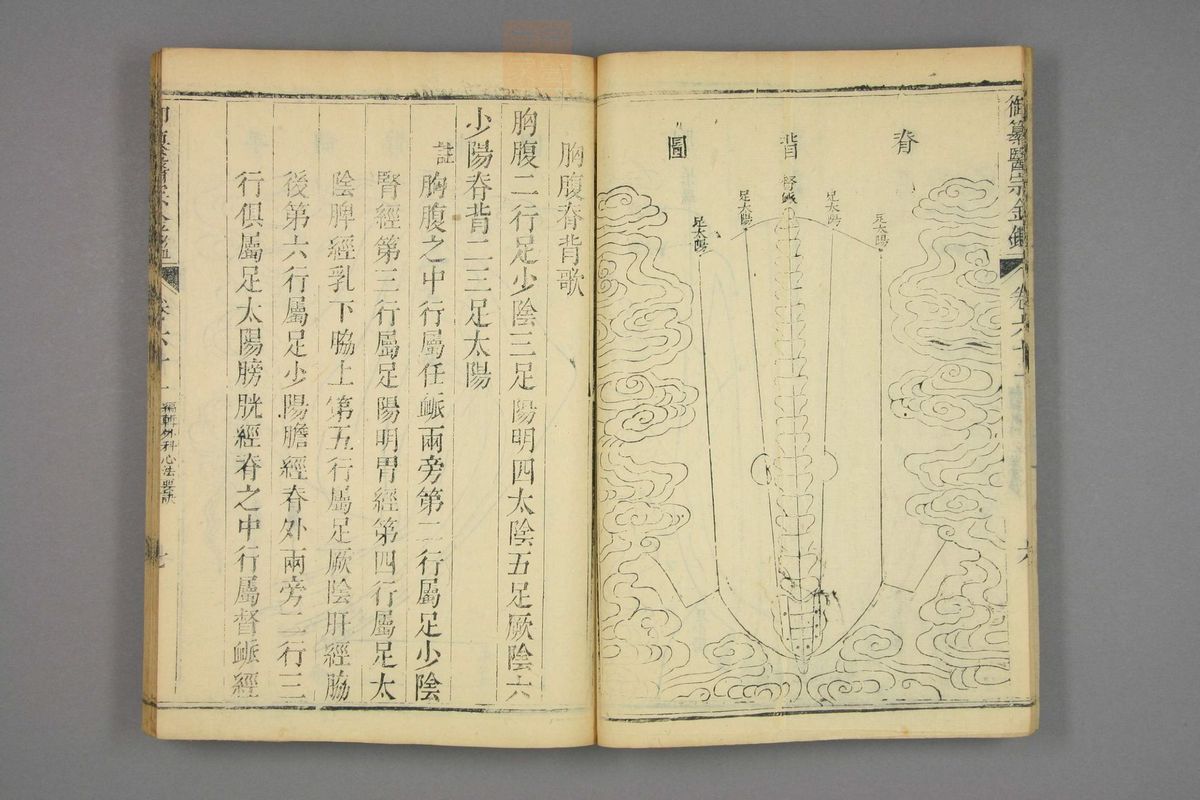 御纂醫宗金鑑
卷六十一
六
脊背圖
足太陽
足太陽
督脈
足太陽
足太陽
胸腹脊背歌
胸腹二行足少陰三足陽明四太陰五足厥陰六
少陽脊背二三足太陽
註
胸腹之中行屬任脈兩旁第二行屬足少陰
腎經第三行屬足陽明胃經第四行屬足太
陰脾經乳下脇上第五行屬足厥陰肝經脇
後第六行屬足少陽膽經脊外兩旁二行三
行俱屬足太陽膀胱經脊之中行屬督脈經
編輯外科心法要訣
七